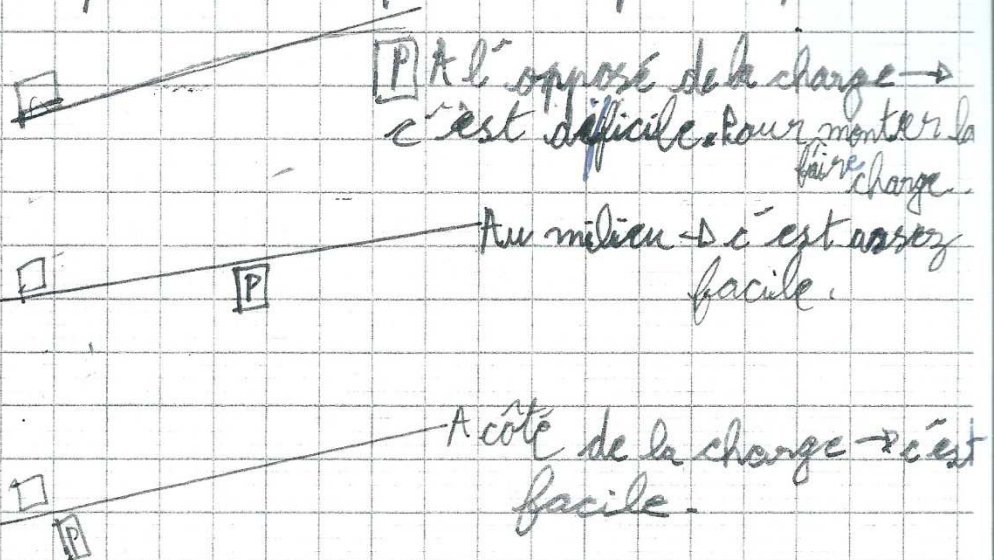 P A l'opposé de la charge →
c'est difficile. Pour monter la
faire charge.
Au milieu → c'est assez
facile.
P
A côté de la charge → c'est
facile.
P